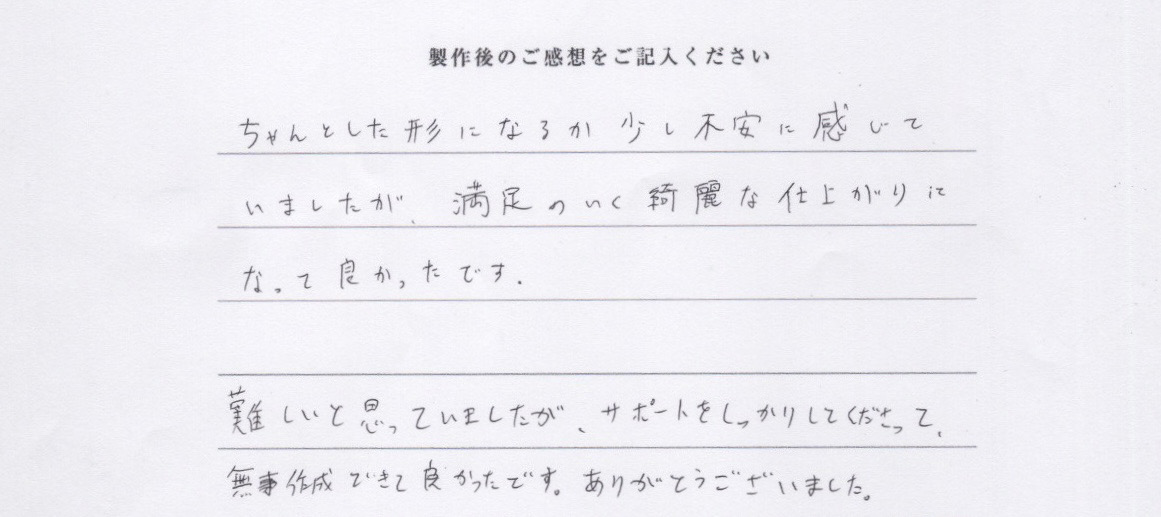 製作後のご感想をご記入ください
ちゃんとした形になるか少し不安に感じて
いましたが、満足のいく綺麗な仕上がりに
なって良かったです.
難しいと思っていましたが、サポートをしっかりしてくださって、
無事作成できて良かったです。ありがとうございました。